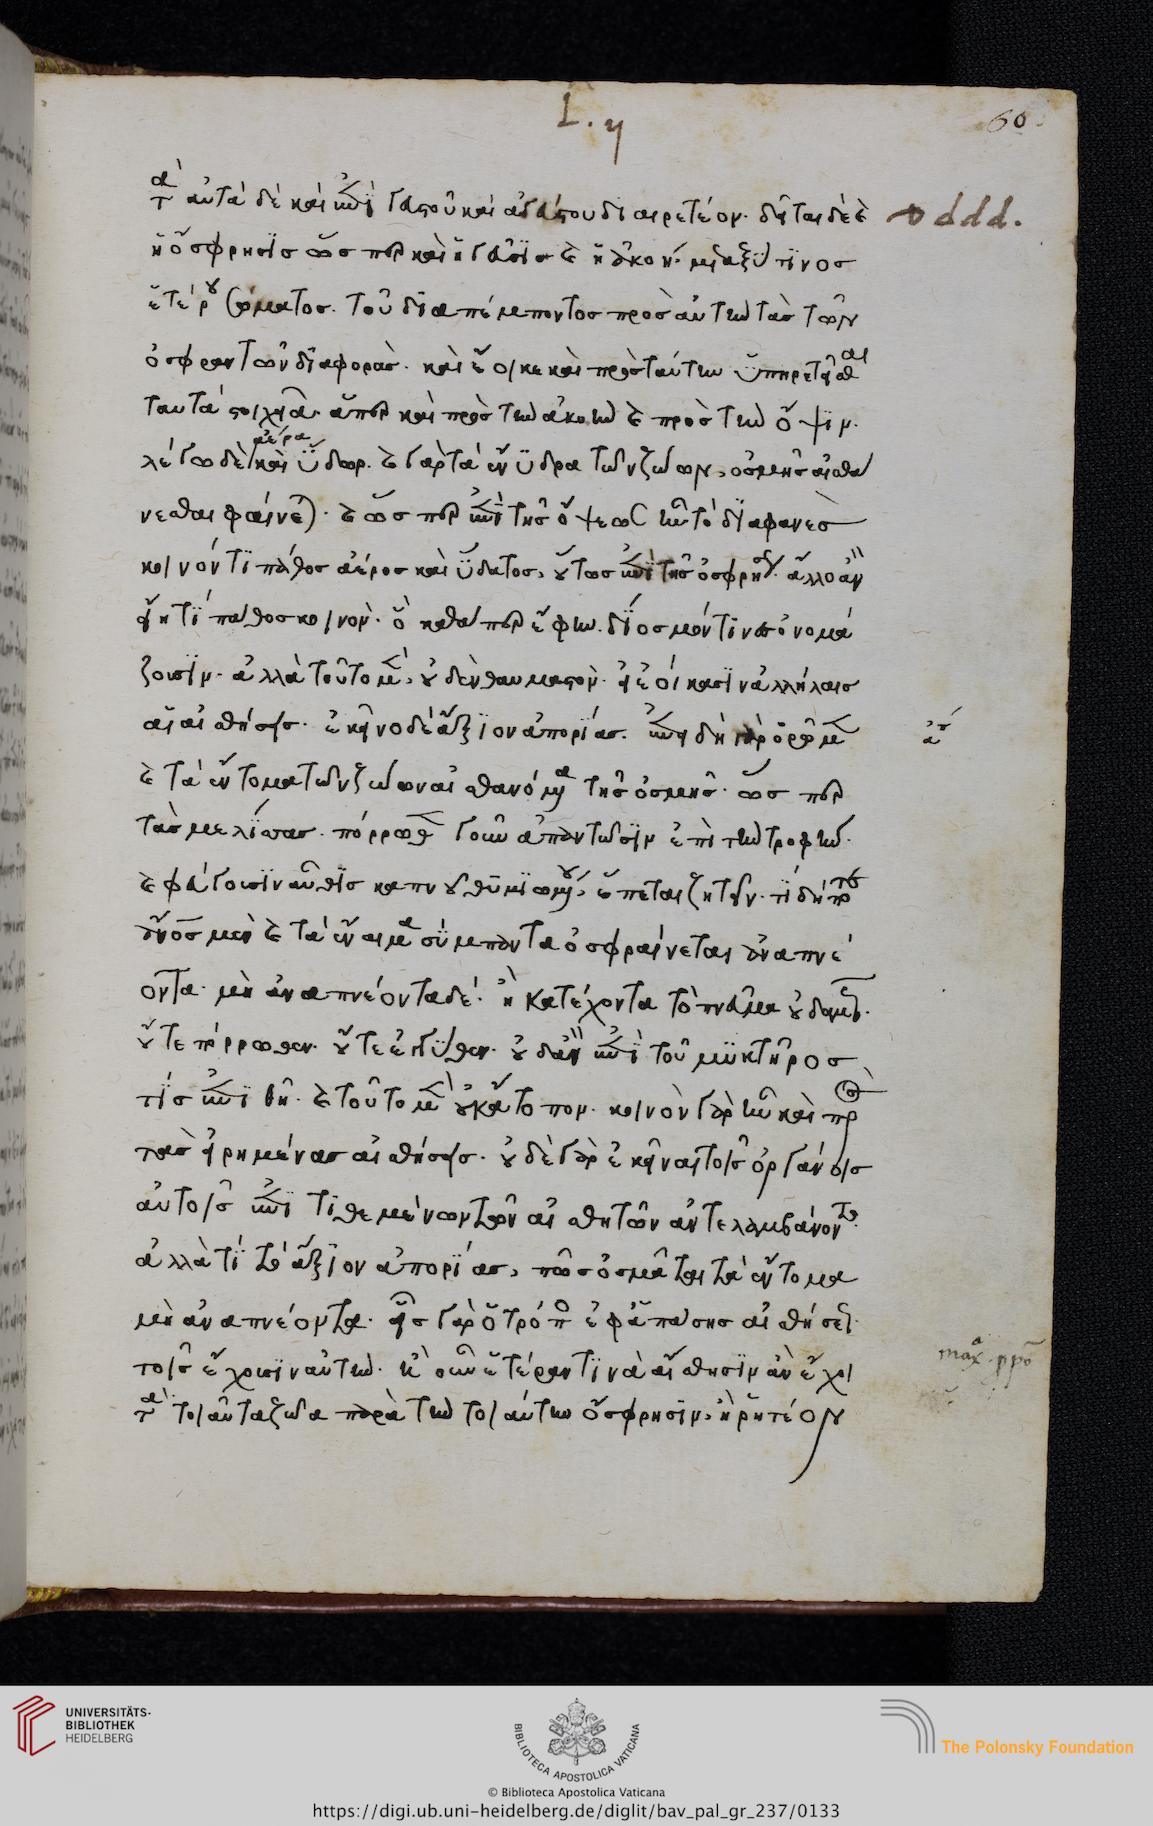 L. y
60.
τὰ αὐτὰ δὲ καὶ ἐπὶ γευστοῦ καὶ ἀγεύστου διαιρετέον. δεῖται δὲ καὶ
ddd.
ἡ ὄσφρησις ὥσπερ καὶ ἡ γεῦσις καὶ ἡ ἀκοή. μεταξύ τινος
ἑτέρου σώματος. τοῦ διαπέμποντος πρὸς αὐτὴν τὰς τῶν
ὀσφραντῶν διαφοράς. καὶ ἔοικε καὶ πρὸς ταύτην ὑπηρετεῖσθαι
ταῦτα στοιχεῖα. ἅπερ καὶ πρὸς τὴν ἀκοὴν καὶ πρὸς τὴν ὄψιν.
λέγω δὲ ἀέρα καὶ ὕδωρ. καὶ γὰρ τὰ ἔνυδρα τῶν ζώων, ὀσμῆς αἰσθά
νεσθαι φαίνεται. καὶ ὥσπερ ἐπὶ τῆς ὄψεως ἦν τὸ διαφανὲς
κοινόν τι πάθος ἀέρος καὶ ὕδατος, οὕτως ἐπὶ τῆς ὀσφρήσεως. ἄλλο ἂν
εἴη τι πάθος κοινόν. ὃ καθάπερ ἔφην. δίοσμόν τινες ὀνομά
ζουσιν. ἀλλὰ τοῦτο μὲν, οὐδὲν θαυμαστόν. εἰ ἐοίκασιν ἀλλήλαις
αἱ αἰσθήσεις. ἐκεῖνο δὲ ἄξιον ἀπορίας. ἐπεὶ δὴ γὰρ ὁρῶμεν
καὶ τὰ ἔντομα τῶν ζώων αἰσθανόμενα τῆς ὀσμῆς. ὥσπερ
τὰς μελίττας. πόρρωθεν γοῦν ἀπαντῶσιν ἐπὶ τὴν τροφήν.
καὶ φεύγουσιν αὖθις καπνοῦ θυμιωμένου, ἕπεται ζητεῖν. τί δήποτε
ἄνθρωπος μὲν καὶ τὰ ἔναιμα σύμπαντα ὀσφραίνεται ἀναπνέ
οντα. μὴ ἀναπνέοντα δέ. ἢ κατέχοντα τὸ πνεῦμα οὐδαμῶς.
οὔτε πόρρωθεν. οὔτε ἐγγύθεν. οὐδ' ἂν ἐπὶ τοῦ μυκτῆρος
τις ἐπιθῇ. καὶ τοῦτο μὲν οὐκ ἄτοπον. κοινὸν γὰρ ἦν καὶ πρὸς
τὰς εἰρημένας αἰσθήσεις. οὐδὲ γὰρ ἐκεῖναι τοῖς ὀργάνοις
αὐτοῖς ἐπιτιθεμένων τῶν αἰσθητῶν ἀντελαμβάνοντο.
ἀλλὰ τί τὸ ἄξιον ἀπορίας, πῶς ὀσμᾶται τὰ ἔντομα
μὴ ἀναπνέοντα. εἷς γὰρ ὁ τρόπος ἐφ' ἁπάσης αἰσθήσεως
τοῖς ἔχουσιν αὐτήν. εἰ οὖν ἑτέραν τινὰ αἴσθησιν ἂν ἔχοι
τὰ τοιαῦτα ζῶα παρὰ τὴν τοιαύτην ὄσφρησιν, ἢ ῥητέον
UNIVERSITÄTS-
BIBLIOTHEK
HEIDELBERG
BIBLIOTECA APOSTOLICA VATICANA
The Polonsky Foundation
© Biblioteca Apostolica Vaticana
https://digi.ub.uni-heidelberg.de/diglit/bav_pal_gr_237/0133